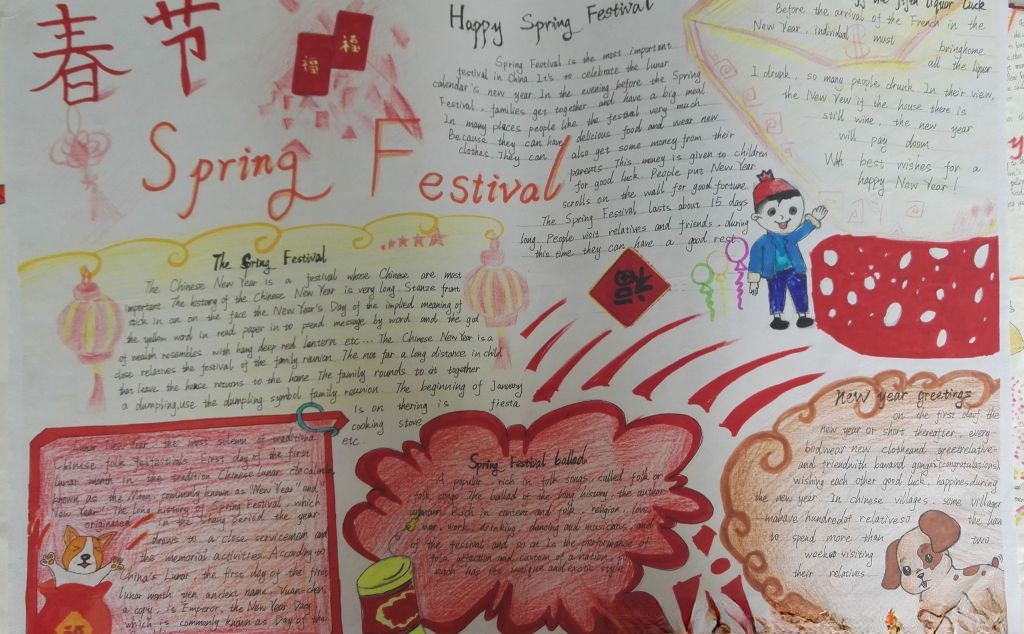 春节
福
福
Spring Festival
Happy Spring Festival
Spring Festival is the most important
festival in China. It's to celebrate the lunar
calendar's new year. In the evening before the Spring
Festival, families get together and have a big meal
In many places people like the festival very much
Because they can have delicious food and wear new
clothes. They can also get some money from their
parents. This money is given to children
for good luck. People put New Year
scrolls on the wall for good fortune.
The Spring Festival lasts about 15 days
long. People visit relatives and friends during
this time they can have a good rest
liquor luck
Before the arrival of the French in the
New Year, individual must bringhome
all the liquor
I drunk, so many people drunk. In their view,
the New Year if the house there is
still wine, the new year
will pay doom.
With best wishes for a
happy New Year!
The Spring Festival
The Chinese New Year is a festival whose Chinese are most
important. The history of the Chinese New Year is very long. Stanze frunt
stick in an on the face the New Year's Day of the implied meaning of
the yellow word in read paper in to spend message by word and the god
of wealth resembles with hang deep red lantern etc... The Chinese New Year is a
close relatives the festival of the family reunion. The not far a long distance in child
than leave the house returns to the home. The family rounds to sit together
a dumpling, use the dumpling symbol family reunion. The beginning of January
is on thering is fiesta
cooking stove
etc
福
Lunar New Year, the most solemn of traditional
Chinese folk festivals. First day of the first
lunar month in the tradition Chinese lunar
known as the Moon, commonly known as "New Year" and
New Year". The long history of Spring Festival, which
originated in the Shang period the year
draws to a close serviceman and
the memorial activities. According to
China's Lunar, the first day of the first
lunar month ancient name, Yuan-chen,
a copy, is Emperor, the New Year Day
which is commonly known as Day of the
福
Spring Festival ballads
A popular, rich in folk songs, called folk or
folk songs. The ballad of the long history, the author
unknown. Rich in content and folk, religion, love,
war, work, drinking, dancing and musicans, and
of the festival and so on. In the performance of
folk affection and custom of a nation,
each has its unique and exotic style
New year greetings
on the first dayt the
new year or short thereafter, every-
bodiwear new clotheand greetrelative-
and friendwith bowand gongxi(congratulations),
wishing each other good luck, happinesduring
the new year. In chinese villages, some villager
mahave hundredot relativeso the han
to spend more than two
weeks visiting
their relatives